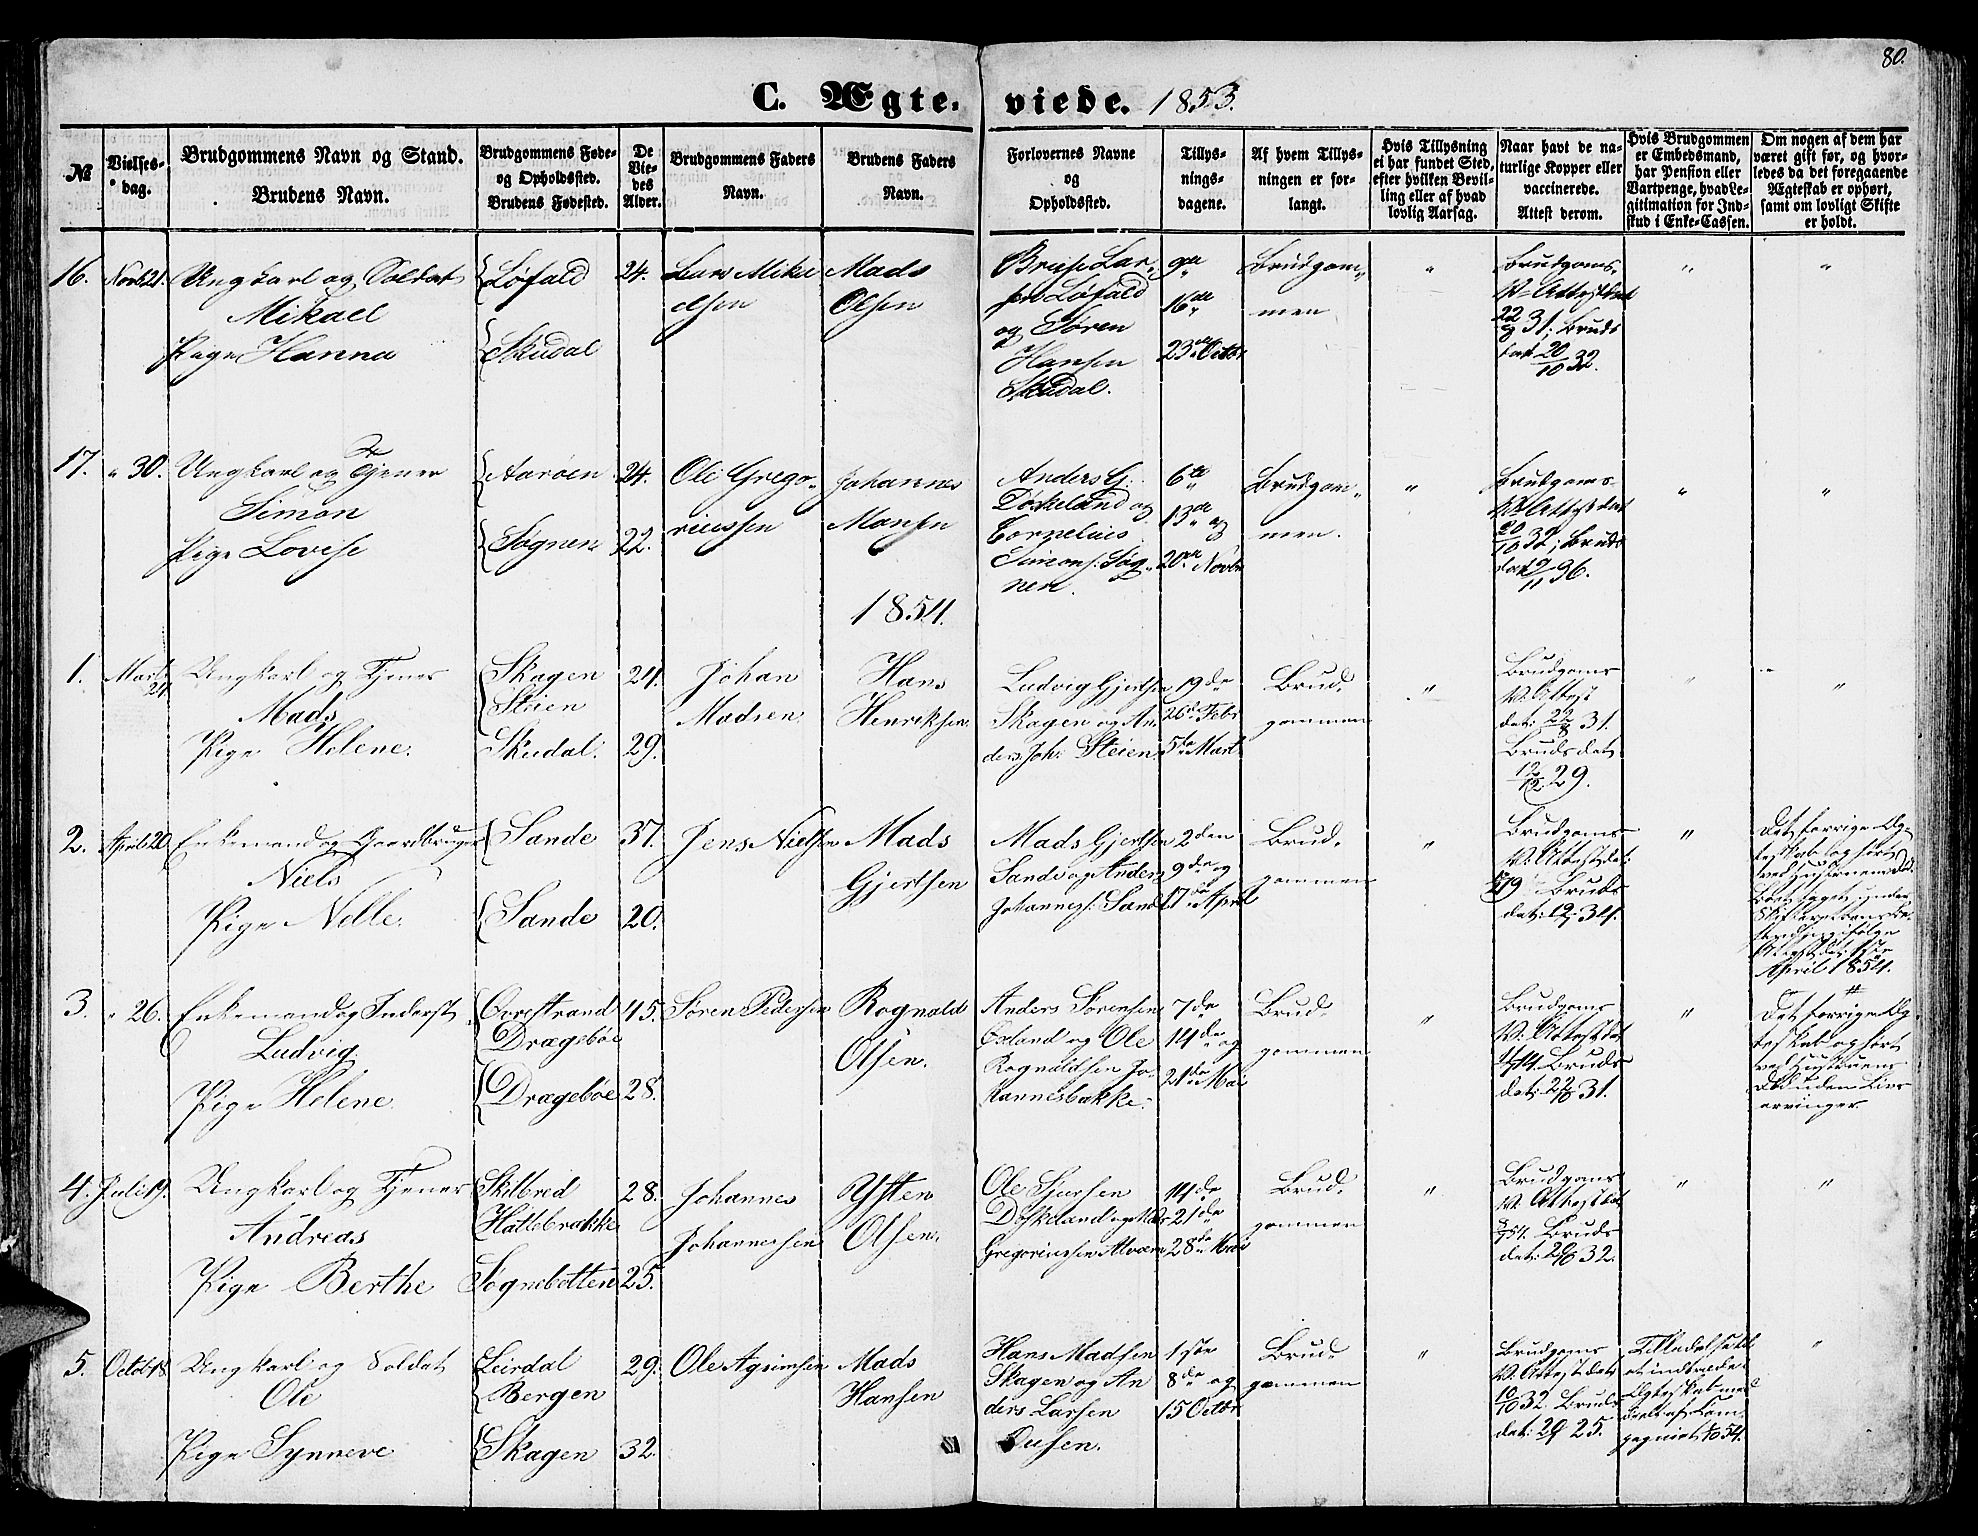 80.
C. Ægte- viede. 1853.
№
Vielses-
dag.
Brudgommens Navn og Stand.
Brudens Navn.
Brudgommens Føde-
og Opholdssted.
Brudens Fødested.
De
Vie-
des
Alder.
Brudgommens Faders
Navn.
Brudens Faders
Navn.
Forlovernes Navne
og
Opholdssted.
Tillys-
nings-
dagene.
Af hvem Tillys-
ningen er for-
langt.
Hvis Tillysning
ei har fundet Sted,
efter hvilken Bevil-
ling eller af hvad
lovlig Aarsag.
Naar havt de na-
turlige Kopper eller
vaccinerede.
Attest derom.
Hvis Brudgommen
er Embedsmand,
har Pension eller
Vartpenge, hvad Le-
gitimation for Ind-
skud i Enke-Cassen.
Om nogen af dem har
været gift før, og hvor-
ledes da det foregaaende
Ægteskab er ophørt,
samt om lovligt Skifte
er holdt.
16. Novb 21. Ungkarl og Soldat
Mikael
Pige Hanna
Løfald
Skudal
24.
Lars Mika
elsen
Mads
Olsen
Lar-
sen Løfald
og Søren
Hansen
Skudal.
9de
16de
23de Octbr.
Brudgom-
men
"
Brudgoms-
V. Attest dat
22/8 31; Bruds
dat 20/10 32.
"
"
17. " 30. Ungkarl og Tjener
Simon
Pige Lovise
Aarøen
Søgnen
24.
22.
Ole Grego-
riussen
Johannes
Monsen
Anders G.
Døskeland og
Cornelius
Simons. Søg-
nen.
6te
13de og
20de Novbr
Brudgom-
men.
"
Brudgoms-
V. Attest dat
20/10 32; Bruds
dat 9/11 36.
"
"
1854.
1. Marts
24.
Ungkarl og Tjener
Mads
Pige Helene.
Skagen
Steien
Skudal.
24.
29.
Johan
Madsen
Hans
Henriksen
Ludvig Gjertsen
Skagen og An-
ders Joh: Steien
19de
26de Febr
5te Mart
Brud-
gommen
"
Brudgoms
V. Attest
dat: 22/8 31.
Bruds dat
12/12 29.
"
"
2. April 20. Enkemand og Gaardbruger
Niels
Pige Nelle.
Sande
Sande
37.
20.
Jens Nielsen
Mads
Gjertsen
Mads Gjertsen
Sande og Anders
Johannes: Sande
2den
9de og
17de April
Brud-
gommen
"
Brudgoms
V. Attest dat:
Bruds
dat:
"
Det forrige Æg-
teskab ophørt
ved Hustruens Død.
April 1854.
3. " 26. Enkemand og Inderst
Ludvig
Pige Helene
Ovrestrand
Drægebøe
Drægebøe
45.
28.
Søren Pedersen
Rognald
Olsen.
Anders Sørensen
Oxland og Ole
Rognaldsen Jo-
hannesbakke.
7de
14de og
21de Mai
Brud-
gommen
"
Brudgoms
V. Attest dat
Bruds
dat: 22/8 31.
"
Det forrige Æg-
teskab ophørt
ved Hustruens
Død uden Livs
arvinger.
4. Juli 19. Ungkarl og Tjener
Andreas
Pige Berthe
Skilbred
Hattebrække
Søgnebotten
28.
25.
Johannes
Johannessen
Ysten
Olsen.
Ole Sjursen
Døskeland og Mads
Gregoriussen Alværn
14de
21de
28de Mai
Brud-
gommen
"
Brudgoms
V. Attest dat
Bruds
dat: 32.
"
"
5. Octob 18. Ungkarl og Soldat
Ole
Pige Synneve
Leirdal
Bergen
Skagen
29.
32.
Ole Agrimsen
Mads
Hansen
Hans Madsen
Skagen og An
ders Larsen
Ousen.
1ste
8de og
15 Octbr
Brud-
gommen
"
Brudgoms
V. Attest dat
10/10 32. Bruds
dat: 25.
Tilladelse til
at indtræde i
Ægteskab med
"